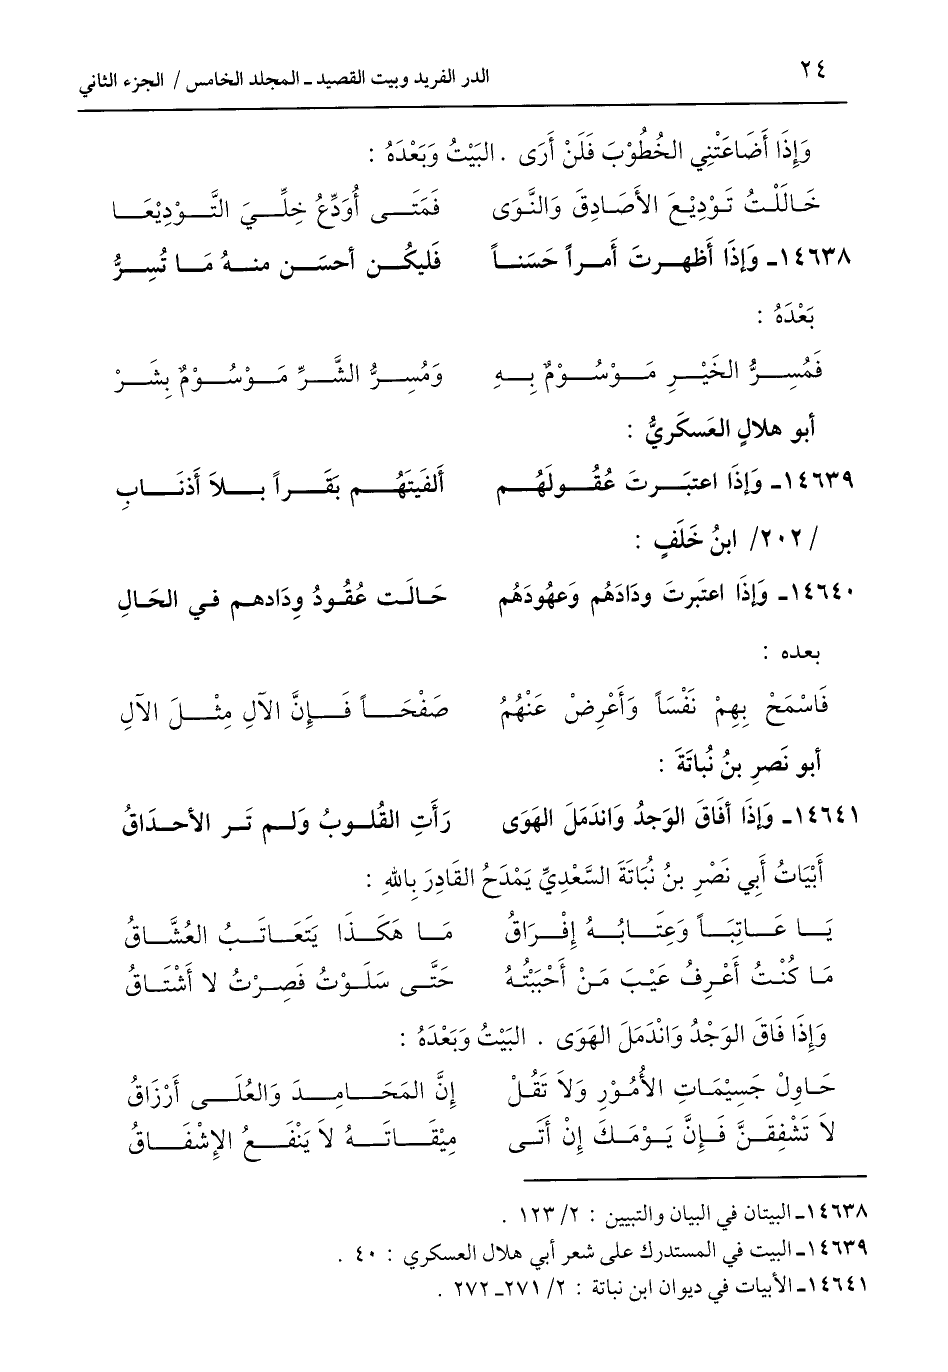 ٢٤
الدر الفريد وبيت القصيد ـ المجلد الخامس / الجزء الثاني
وَإِذَا أَضَاعَتْنِي الخُطُوْبَ فَلَنْ أَرَى . البَيْتُ وَبَعْدَهُ :
خَالَلْتُ تَوْدِيْعَ الأَصَادِقِ وَالنَّوَى فَمَتَى أُوَدِّعُ خِلِّيَ التَّوْدِيْعَا
١٤٦٣٨ـ وَإِذَا أَظهرتَ أمراً حَسَناً فَليكُن أحسَن منهُ مَا تُسِرُّ
بَعْدَهُ :
فَمُسِرُّ الخَيْرِ مَوْسُوْمٌ بِهِ وَمُسِرُّ الشَّرِّ مَوْسُوْمٌ بِشَرْ
أبو هلالٍ العَسكَريُّ :
١٤٦٣٩ـ وَإِذَا اعتبَرتَ عُقُولَهُم ألفَيتَهُم بَقَراً بلاَ أذنَابِ
/٢٠٢/ ابنُ خَلَفٍ :
١٤٦٤٠ـ وَإِذَا اعتَبرتَ ودَادَهُم وَعهُودَهُم حَالَت عُقُودُ ودَادهم في الحَالِ
بعده :
فَاسْمَحْ بِهِمْ نَفْسَاً وَأَعْرِضْ عَنْهُمُ صَفْحَاً فَإِنَّ الآلِ مِثْلَ الآلِ
أبو نَصرِ بنُ نُباتَةَ :
١٤٦٤١ـ وَإِذَا أفَاقَ الوَجدُ وَاندَمَلَ الهَوَى رَأتِ القُلوبُ وَلم تَر الأحدَاقُ
أَبْيَاتُ أَبِي نَصْرِ بنُ نُبَاتَةَ السَّعْدِيِّ يَمْدَحُ القَادِرَ بِاللهِ :
يَا عَاتِبَاً وَعِتَابُهُ إِفْرَاقُ مَا هَكَذَا يَتَعَاتَبُ العُشَّاقُ
مَا كُنْتُ أَعْرِفُ عَيْبَ مَنْ أَحْبَبْتُهُ حَتَّى سَلَوْتُ فَصِرْتُ لا أَشْتَاقُ
وَإِذَا فَاقَ الوَجْدُ وَانْدَمَلَ الهَوَى . البَيْتُ وَبَعْدَهُ :
حَاوِلْ جَسِيْمَاتِ الأُمُوْرِ وَلاَ تَقُلْ إِنَّ المَحَامِدَ وَالعُلَى أَرْزَاقُ
لاَ تَشْفِقَنَّ فَإِنَّ يَوْمَكَ إِنْ أَتَى مِيْقَاتهُ لاَ يَنْفَعُ الإِشْفَاقُ
١٤٦٣٨ـ البيتان في البيان والتبيين : ٢/ ١٢٣ .
١٤٦٣٩ـ البيت في المستدرك على شعر أبي هلال العسكري : ٤٠ .
١٤٦٤١ـ الأبيات في ديوان ابن نباتة : ٢/ ٢٧١ـ ٢٧٢ .